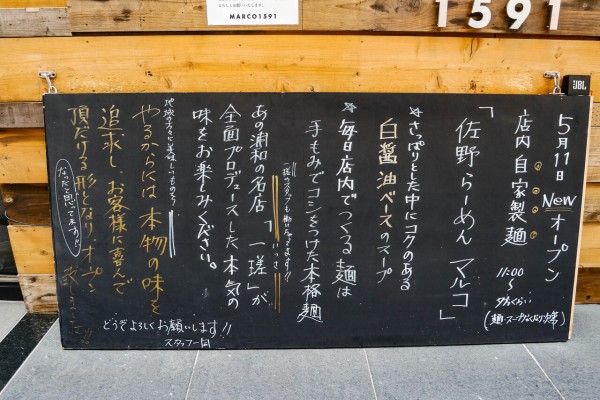 よろしくお願いいたします。
MARCO1591
1591
JBL
5月11日 New オープン
店内自家製麺
11:00
～
夕方くらい
(麺・スープなくなり次第)
「佐野らーめん マルコ」
☆さっぱりとした中にコクのある
白醤油ベースのスープ
☆毎日店内でつくる麺は
手もみでコシをつけた本格麺
一瑳のスタッフも働いてます!!
あの浦和の名店「一瑳」が
いっさ
全面プロデュースした本気の
味をお楽しみください。
地域の方々に美味しいものを!
やるからには本物の味を
追求し、お客様に喜んで
頂だける形となり、オープン
致しました!!
なったと思ってます!!
どうぞよろしくお願いします!!
スタッフ一同